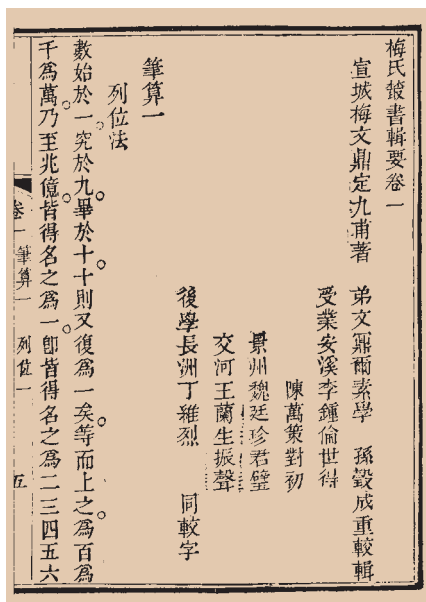 梅氏叢書輯要卷一
宣城梅文鼎定九甫著　弟文鼏爾素學　孫瑴成重較輯
受業安溪李鍾倫世得
陳萬策對初
景州魏廷珍君璧
交河王蘭生振聲
後學長洲丁維烈　同較字
筆算一
列位法
數始於一究於九畢於十十則又復爲一矣等而上之爲百爲
千爲萬乃至兆億皆得名之爲一卽皆得名之爲二三四五六
卷一　筆算一　列位一　五